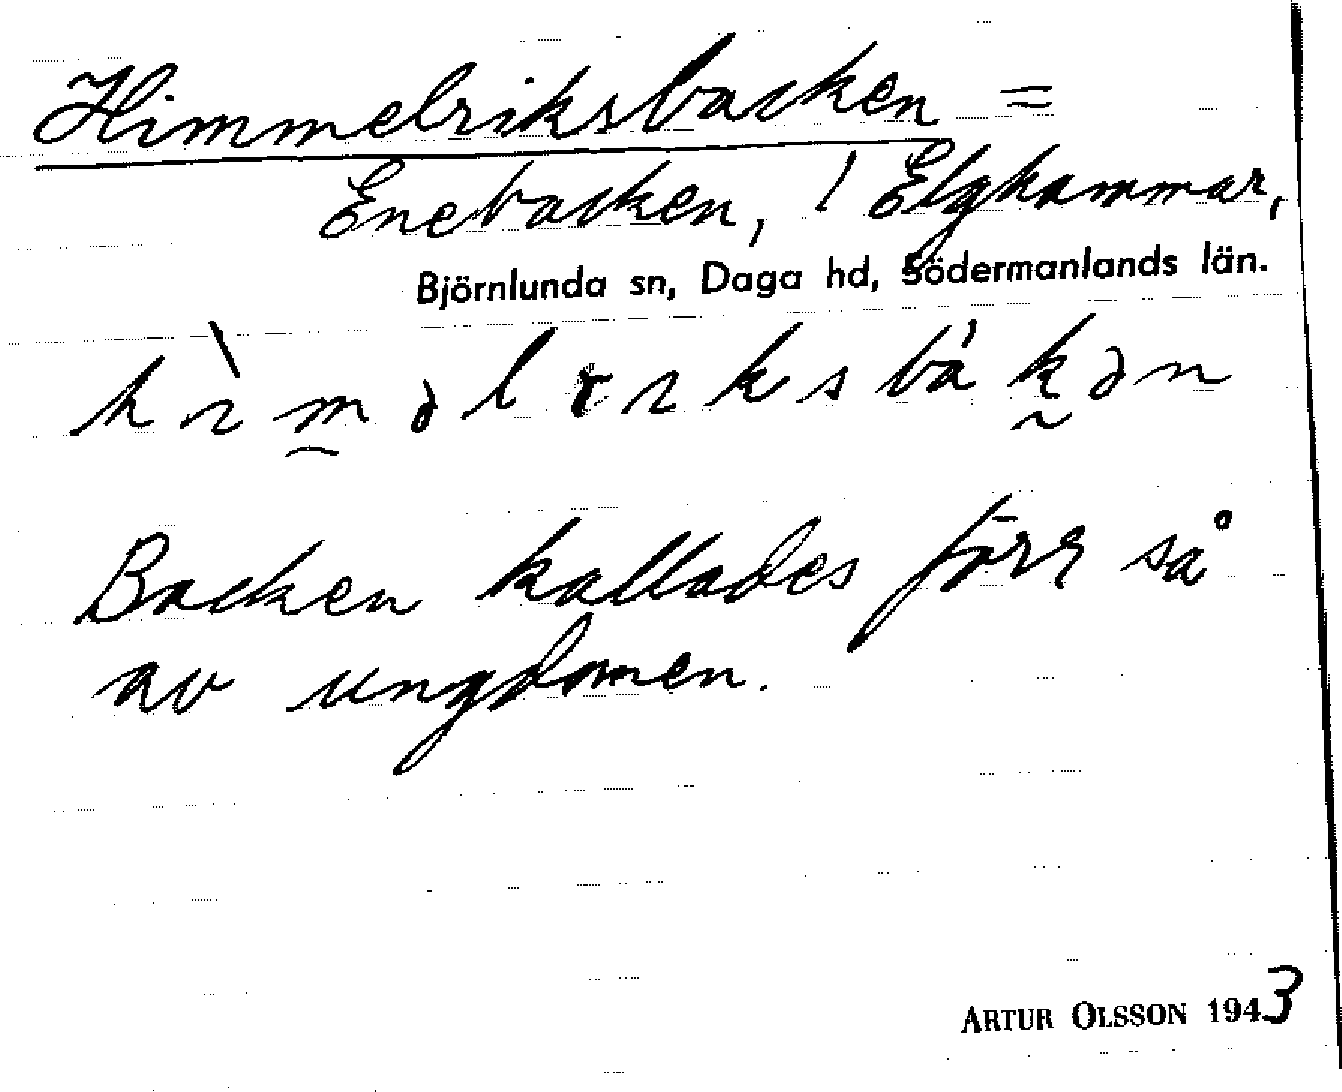 Himmelriksbacken =
Enebacken, / Elghammar,
Björnlunda sn, Daga hd, Södermanlands län.
hìm̲əlrɩksbák̰ən
Backen kallades förr så
av ungdomen.
ARTUR OLSSON 1943